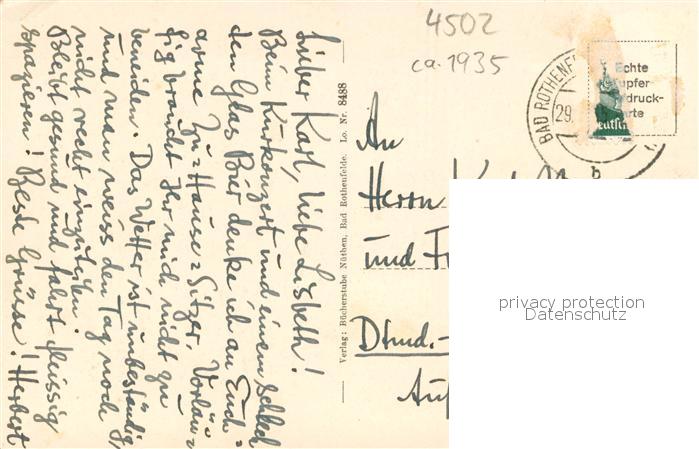 Lieber Karl, liebe Lisbeth!
Beim Kurkonzert und einem schlech
den Glas Bier denke ich an Euch
arme Zu=Hause=Sitzer. Vorläu=
fig braucht Ihr mich nicht zu
beneiden. Das Wetter ist unbeständig,
und man weiss den Tag noch
nicht recht einzuteilen.
Bleibt gesund und fahrt fleissig
spazieren! Beste Grüsse! Herbert
Verlag: Bücherstube Nüthen, Bad Rothenfelde. Lo. Nr. 8488
4502
ca. 1935
BAD ROTHENF
29.
b
Echte
Kupfer
druck-
arte
An
Herrn
und
Dtmd.-
privacy protection
Datenschutz